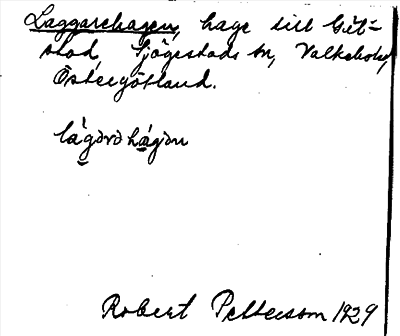 Laggarehagen, hage till Gät-
stad, Sjögestads sn, Valkebo hd,
Östergötland.
lágərəhágən
Robert Pettersson 1929